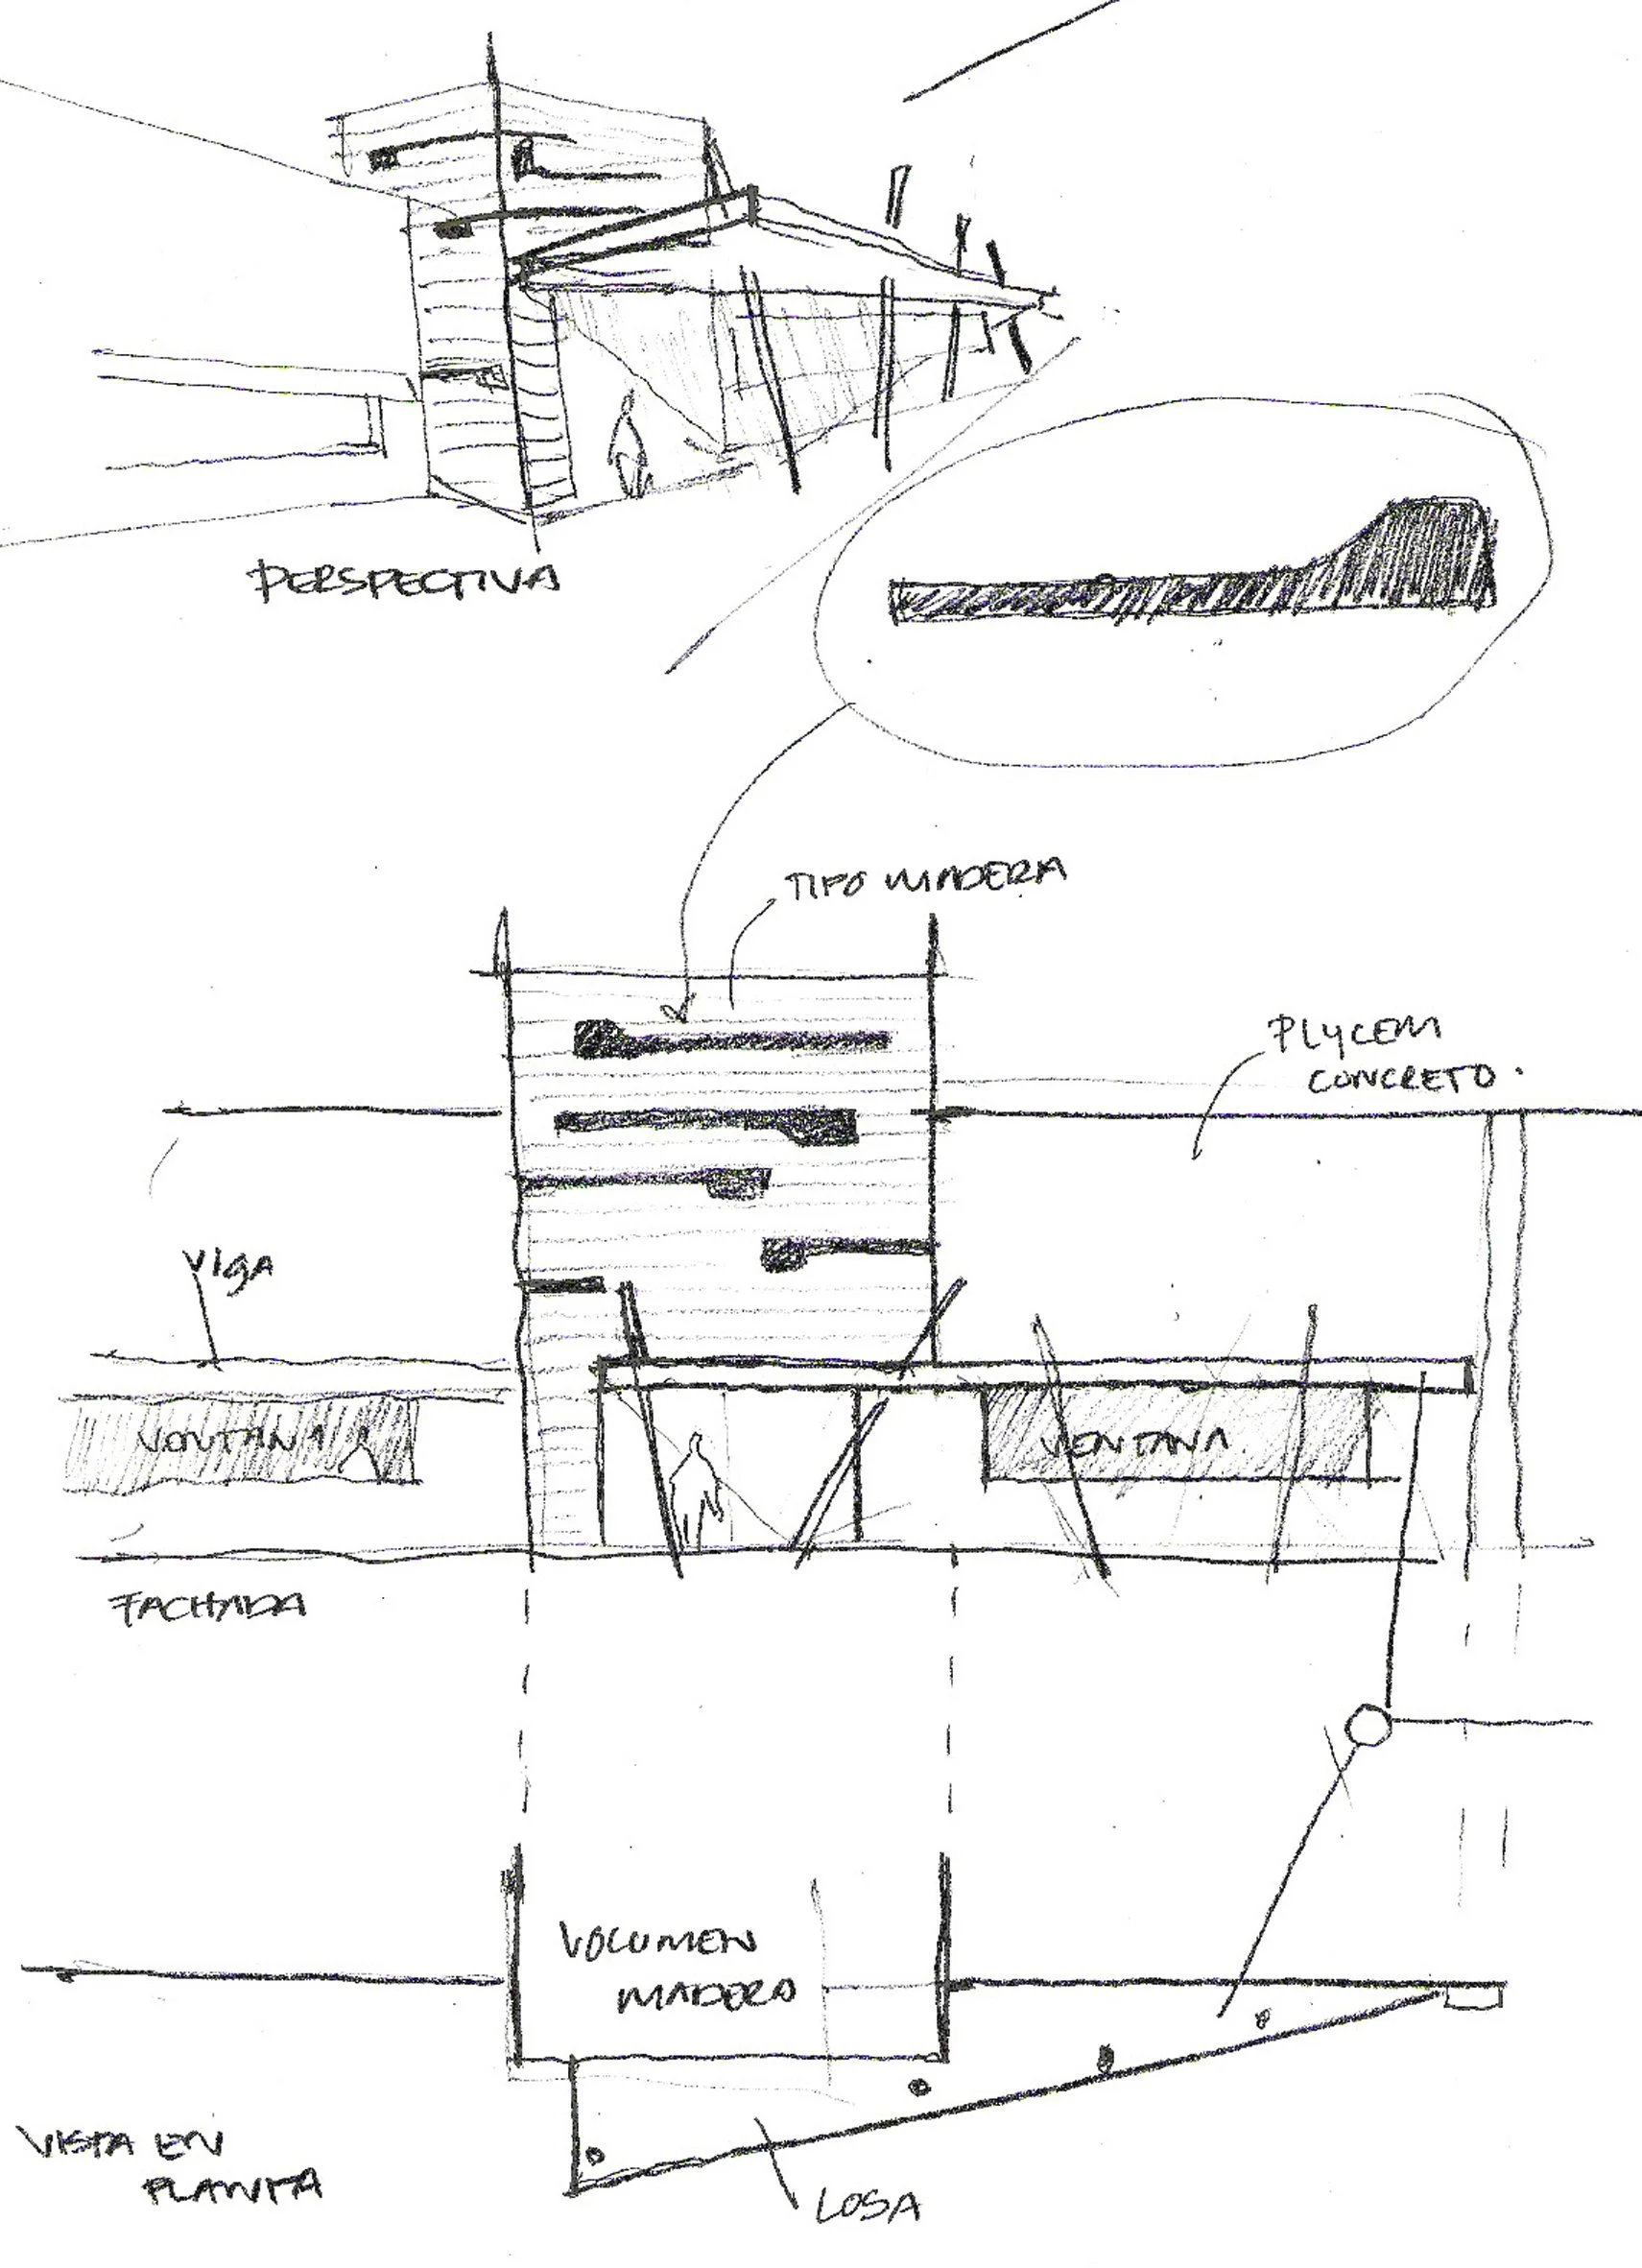 PERSPECTIVA
TIPO MADERA
PLYCEM
CONCRETO.
VIGA
VENTANA
VENTANA
FACHADA
VOLUMEN
MADERA
VISTA EN
PLANTA
LOSA